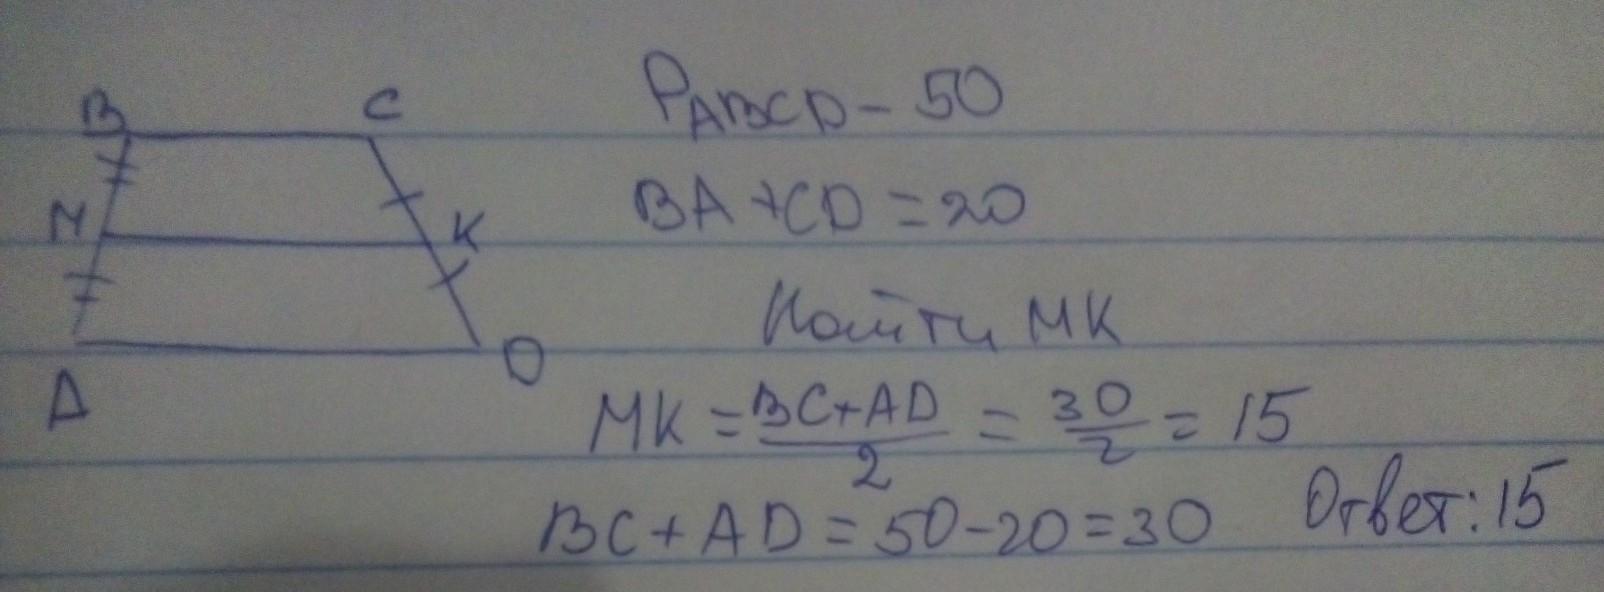 B C
M K
A D
P ABCD - 50
BA + CD = 20
Найти MK
MK = BC + AD / 2 = 30 / 2 = 15
BC + AD = 50 - 20 = 30
Ответ: 15